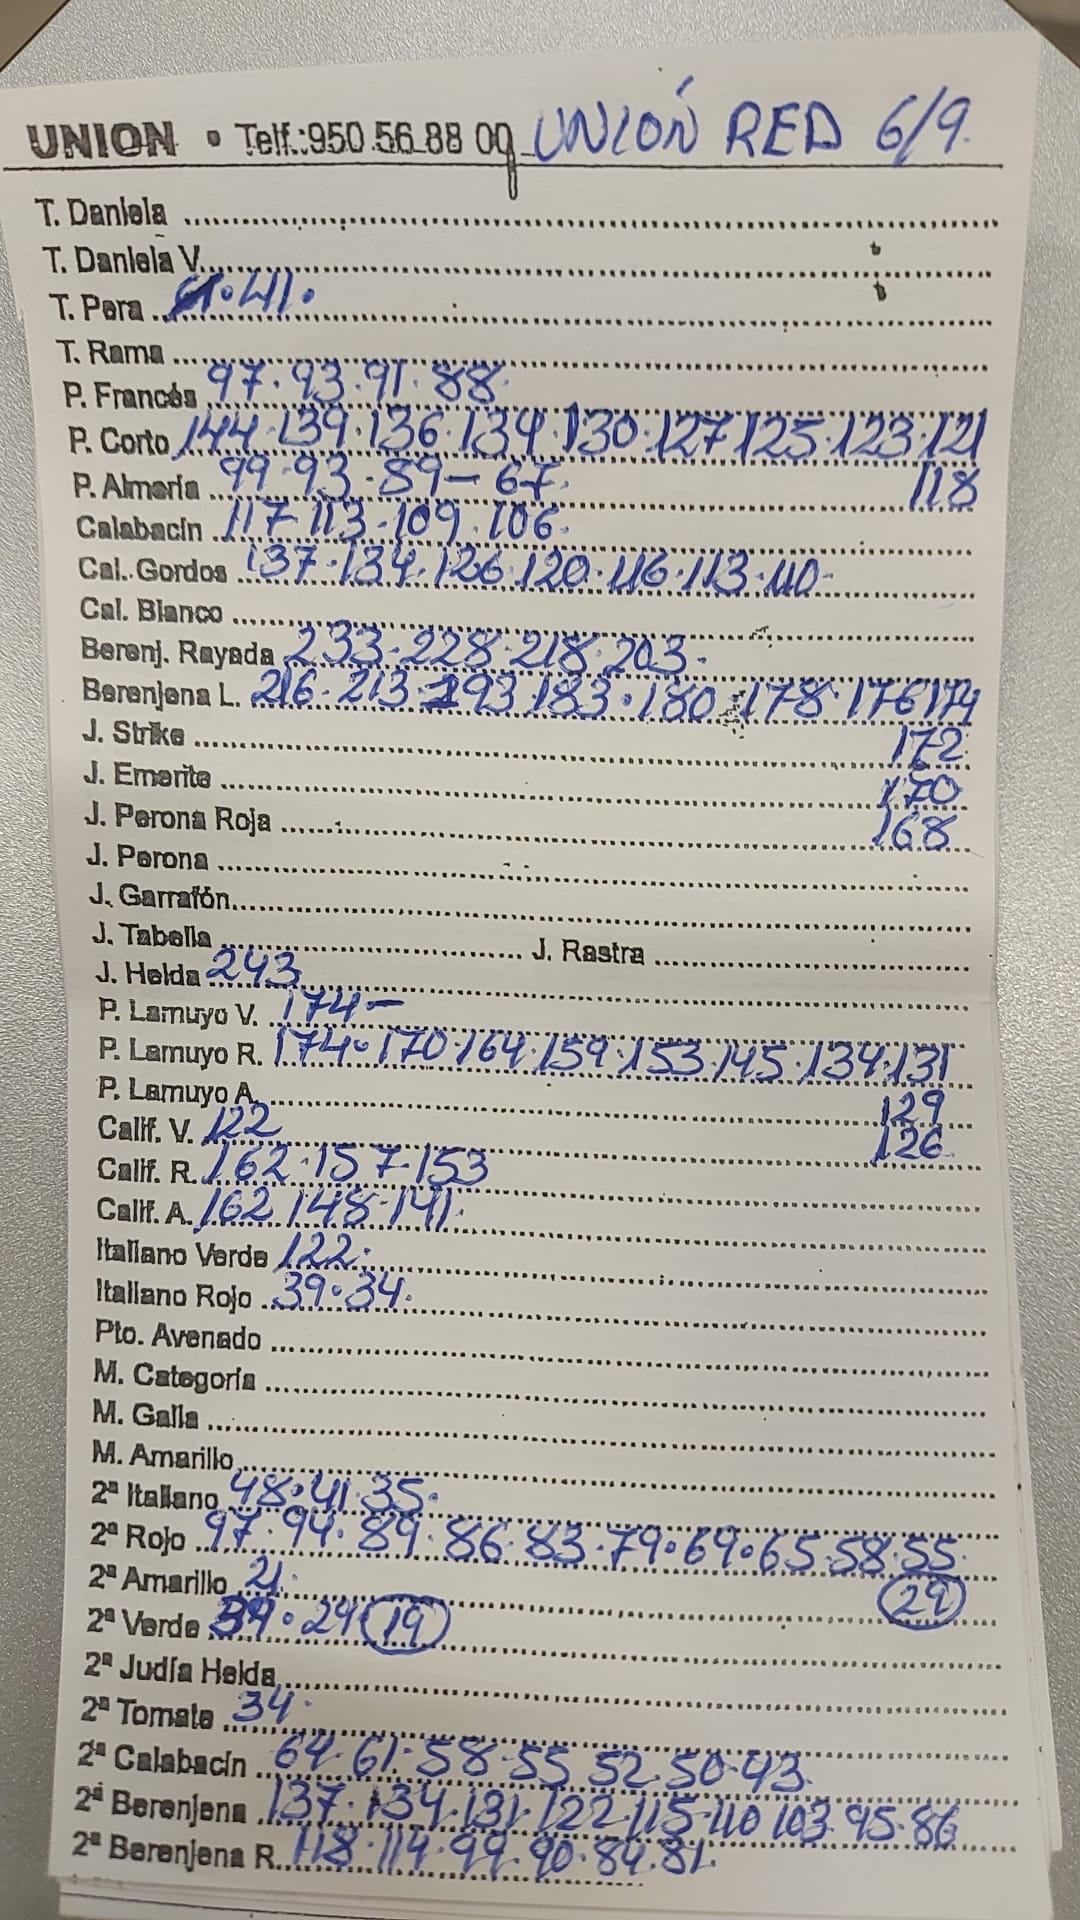 UNION • Telf.:950 56 88 09 UNIÓN RED 6/9.
T. Daniela
T. Daniela V.
T. Pera 41.
T. Rama
P. Francés 97.93.91.88.
P. Corto 144.139.136.134.130.127 125.123.121
118
P. Almería 99.93.89-67.
Calabacín 117 113.109.106.
Cal. Gordos 137.134.126.120.116.113.110-
Cal. Blanco
Berenj. Rayada 233.228.218.203.
Berenjena L. 216.213.193 183.180.178.176 174
172
170
168
J. Strike
J. Emerite
J. Perona Roja
J. Perona
J. Garrafón
J. Tabella J. Rastra
J. Helda 243
P. Lamuyo V. 174-
P. Lamuyo R. 174.170.164.159.153.145.134.131
129
126
P. Lamuyo A.
Calif. V. 122
Calif. R. 162.157-153
Calif. A. 162 148-141.
Italiano Verde 122.
Italiano Rojo 39.34.
Pto. Avenado
M. Categoría
M. Galia
M. Amarillo
2ª Italiano 48.41.35.
2ª Rojo 97.94.89.86.83.79.69.65.58.55.
29
2ª Amarillo 21.
2ª Verde 39.29 19
2ª Judía Helda
2ª Tomate 34.
2ª Calabacín 64.61.58.55 52.50.43.
2ª Berenjena 137.134.131.122.115.110 103.95.86
2ª Berenjena R. 118.114.99.90.84.81.